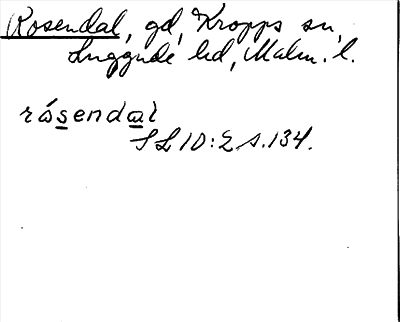 Rosendal, gd, Kropps sn,
Luggude hd, Malm. l.
rósendal
SL 10:2 s.134.